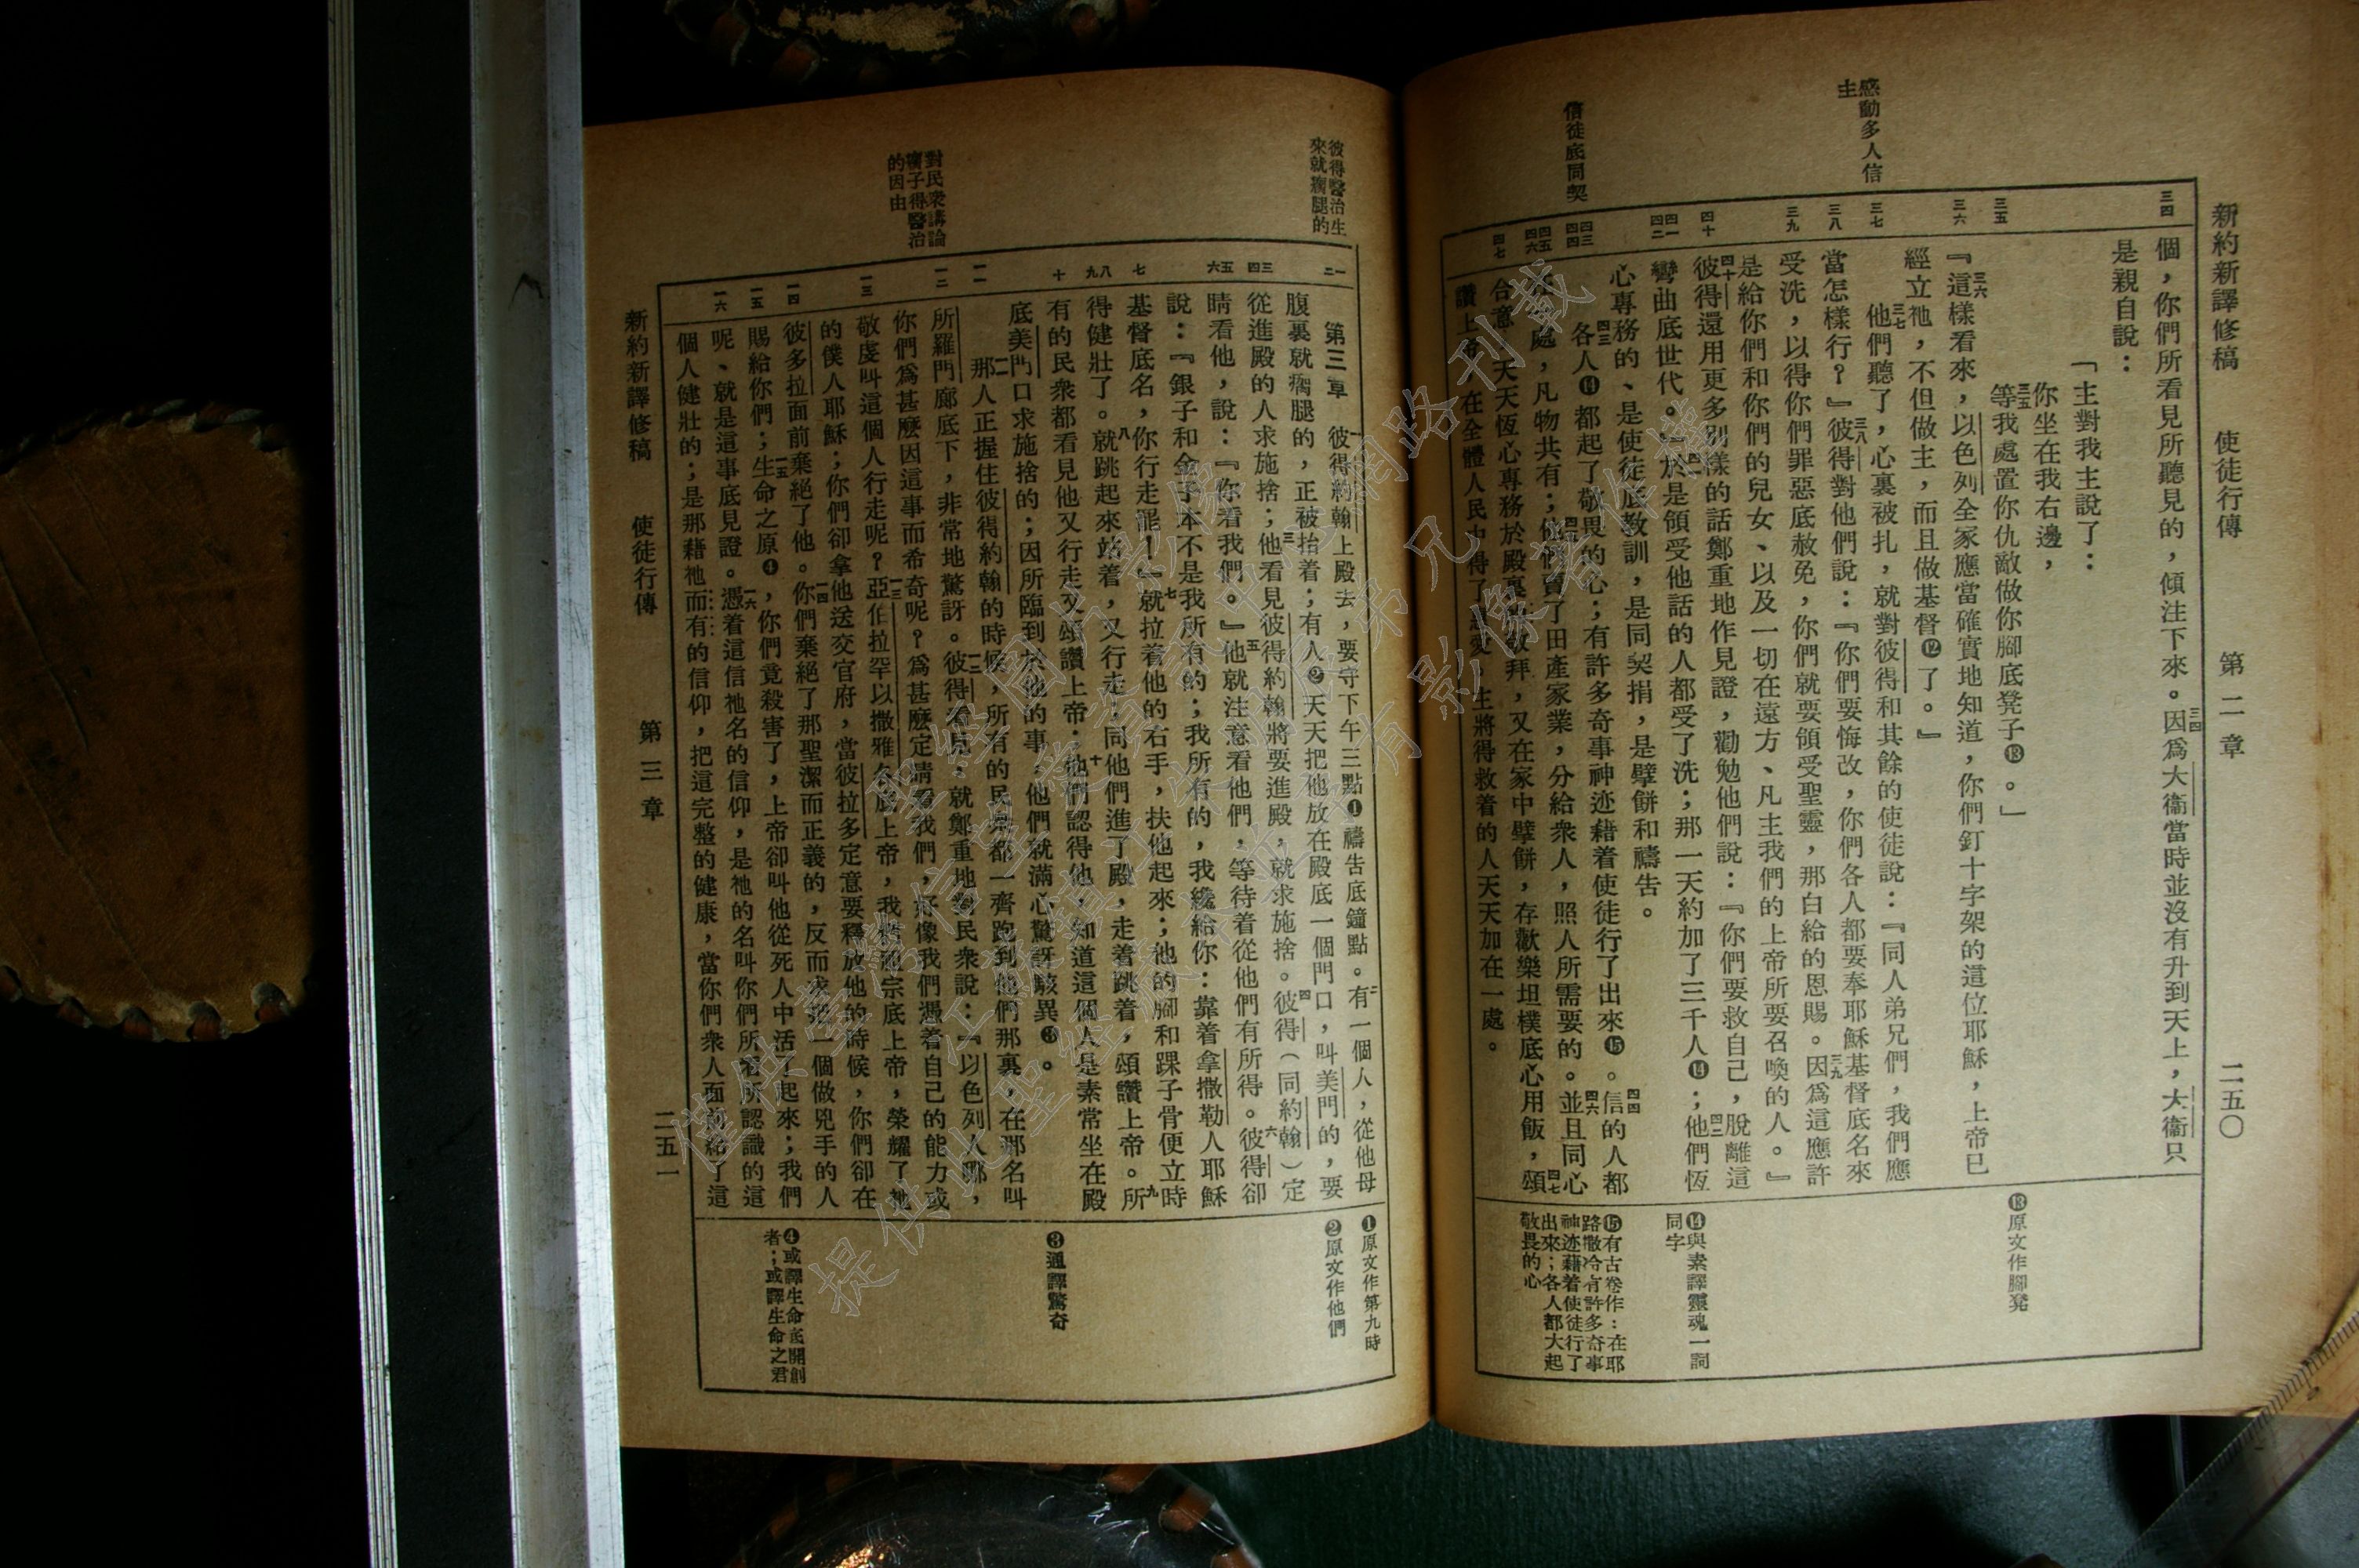 新約新譯修稿　使徒行傳　第二章　二五〇
感動多人信
主
信徒底同契
三四
三五
三六
三七
三八
三九
四十
四一
四二
四三
四四
四五
四六
四七
個，你們所看見所聽見的，傾注下來。三四因爲大衞當時並沒有升到天上，大衞只
是親自說：
「主對我主說了：
你坐在我右邊，
三五等我處置你仇敵做你腳底凳子⓭。」
『三六這樣看來，以色列全家應當確實地知道，你們釘十字架的這位耶穌，上帝已
經立祂，不但做主，而且做基督⓬了。』
三七他們聽了，心裏被扎，就對彼得和其餘的使徒說：『同人弟兄們，我們應
當怎樣行？』三八彼得對他們說：『你們要悔改，你們各人都要奉耶穌基督底名來
受洗，以得你們罪惡底赦免，你們就要領受聖靈，那白給的恩賜。三九因爲這應許
是給你們和你們的兒女、以及一切在遠方、凡主我們的上帝所要召喚的人。』
四十彼得還用更多別樣的話鄭重地作見證，勸勉他們說：『你們要救自己，脫離這
彎曲底世代。』於是領受他話的人都受了洗；那一天約加了三千人⓮；四二他們恆
心專務的、是使徒底教訓，是同契捐，是擘餅和禱告。
四三各人⓮都起了敬畏的心；有許多奇事神迹藉着使徒行了出來⓯。四四信的人都
處，凡物共有；他們賣了田產家業，分給衆人，照人所需要的。四六並且同心
合意、天天恆心專務於殿裏敬拜，又在家中擘餅，存歡樂坦樸底心用飯，四七頌
讚上帝，在全體人民中得了恩愛。主將得救着的人天天加在一處。
⓭原文作腳凳
⓮與素譯靈魂一詞
同字
⓯有古卷作：在耶
路撒冷有許多奇事
神迹藉着使徒行了
出來；各人都大起
敬畏的心
彼得醫治生
來就瘸腿的
對民衆講論
瘸子得醫治
的因由
一
二
三
四
五
六
七
八
九
十
一一
一二
一三
一四
一五
一六
第三章　一彼得約翰上殿去，要守下午三點❶禱告底鐘點。二有一個人，從他母
腹裏就瘸腿的，正被抬着；有人❷天天把他放在殿底一個門口，叫美門的，要
從進殿的人求施捨；三他看見彼得約翰將要進殿，就求施捨。四彼得（同約翰）定
睛看他，說：『你看我們。』五他就注意看他們，等待着從他們有所得。六彼得卻
說：『銀子和金子本不是我所有的；我所有的，我纔給你：靠着拿撒勒人耶穌
基督底名，你行走罷！』七就拉着他的右手，扶他起來；他的腳和踝子骨便立時
得健壯了。八就跳起來站着，又行走；同他們進了殿，走着跳着，頌讚上帝。九所
有的民衆都看見他又行走又頌讚上帝；十他們認得他，知道這個人是素常坐在殿
底美門口求施捨的；因所臨到於他的事，他們就滿心驚訝駭異❸。
一一那人正握住彼得約翰的時候，所有的民衆都一齊跑到他們那裏，在那名叫
所羅門廊底下，非常地驚訝。一二彼得看見，就鄭重地對民衆說：『以色列人哪，
你們爲甚麼因這事而希奇呢？爲甚麼定睛看我們，好像我們憑着自己的能力或
敬虔叫這個人行走呢？一三亞伯拉罕以撒雅各底上帝，我們祖宗底上帝，榮耀了祂
的僕人耶穌；你們卻拿他送交官府，當彼拉多定意要釋放他的時候，你們卻在
彼多拉面前棄絕了他。一四你們棄絕了那聖潔而正義的，反而求把一個做兇手的人
賜給你們；一五生命之原❹，你們竟殺害了，上帝卻叫他從死人中活了起來；我們
呢、就是這事底見證。一六憑着這信祂名的信仰，是祂的名叫你們所看所認識的這
個人健壯的；是那藉祂而有的信仰，把這完整的健康，當你們衆人面前給了這
❶原文作第九時
❷原文作他們
❸通譯驚奇
❹或譯生命底開創
者；或譯生命之君
新約新譯修稿　使徒行傳　第三章　二五一